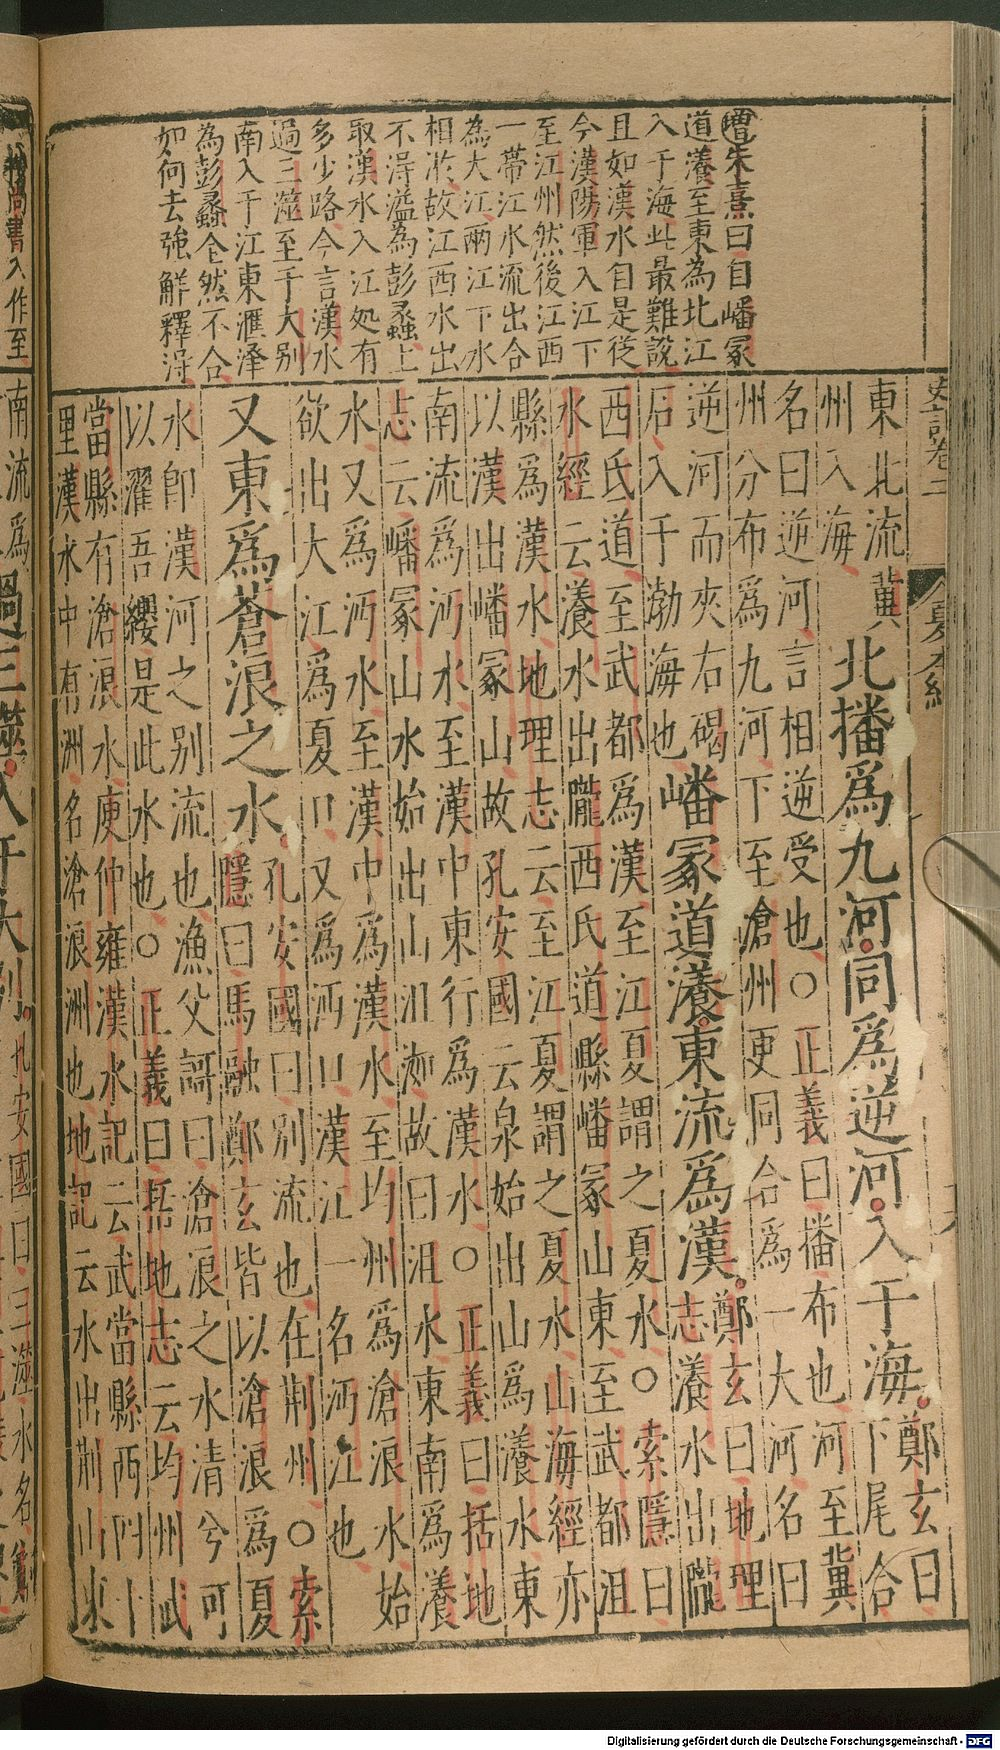 增朱熹曰自嶓冢
道瀁至東為北江
入于海此最難說
且如漢水自是從
今漢陽軍入江下
至江州然後江西
一帶江水流出合
為大江兩江下水
相淤故江西水出
不淂溢為彭蠡上
取漢水入江処有
多少路今言漢水
過三澨至于大别
南入于江東滙泽
為彭蠡全然不合
如何去強觧釋淂
東北流冀
州入海
北播爲九河同爲逆河入于海
鄭玄曰
下尾合
名曰逆河言相逆受也○正義曰播布也河至冀
州分布爲九河下至滄州更同合爲一大河名曰
逆河而夾右碣
石入于渤海也
嶓冢道瀁東流爲漢
鄭玄曰地理
志瀁水出隴
西氏道至武都爲漢至江夏謂之夏水○索隱曰
水經云瀁水出隴西氏道縣嶓冢山東至武都沮
縣爲漢水地理志云至江夏謂之夏水山海經亦
以漢出嶓冢山故孔安國云泉始出山爲瀁水東
南流爲沔水至漢中東行爲漢水○正義曰括地
志云嶓冢山水始出山沮洳故曰沮水東南爲瀁
水又爲沔水至漢中爲漢水至均州爲滄浪水始
欲出大江爲夏口又爲沔口漢江一名沔江也
又東爲蒼浪之水
孔安國曰别流也在荆州○索
隱曰馬融鄭玄皆以滄浪爲夏
水即漢河之别流也漁父謌曰滄浪之水清兮可
以濯吾纓是此水也○正義曰括地志云均州武
當縣有滄浪水庾仲雍漢水記云武當縣西
里漢水中有洲名滄浪洲也地記云水出荆山東
史記卷二
夏本紀
Digitalisierung gefördert durch die Deutsche Forschungsgemeinschaft - DFG